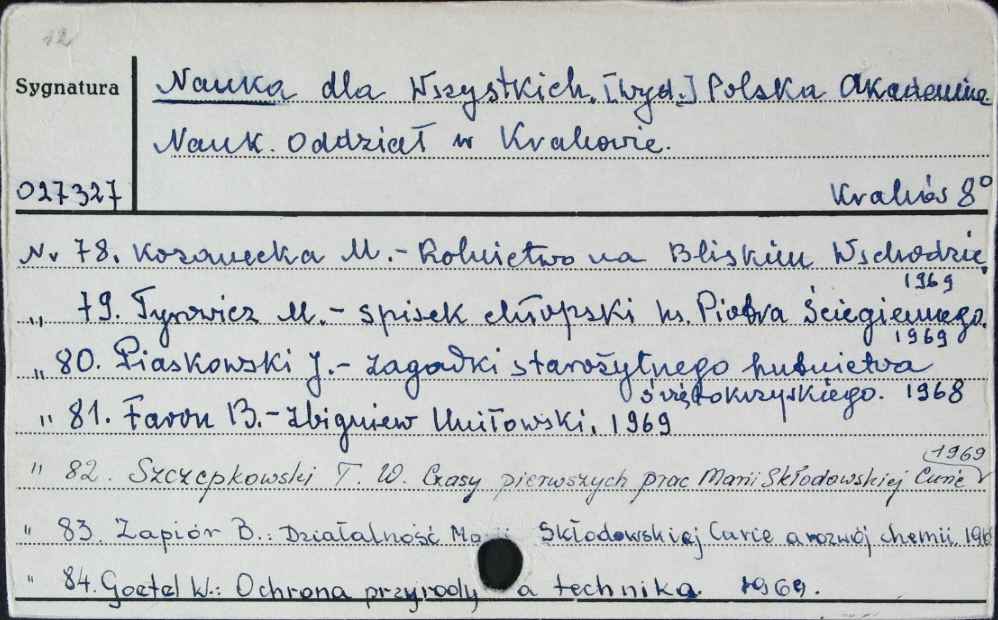 12
Sygnatura
Nauka dla Wszystkich. [wyd.] Polska Akademia
Nauk. Oddział w Krakowie.
027327
Kraków 8°
N. 78. Kozanecka M. - Rolnictwo na Bliskim Wschodzie
1969
" 79. Tyrowicz M. - spisek chłopski ks. Piotra Ściegiennego.
1969
" 80. Piaskowski J. - zagadki starożytnego hutnictwa
świętokrzyskiego. 1968
" 81. Faron B. - Zbigniew Uniłowski. 1969
" 82. Szczepkowski T. W. Czasy pierwszych prac Marii Skłodowskiej Curie
1969
" 83. Zapiór B.: Działalność Skłodowskiej Curie a rozwój chemii. 196
" 84. Goetel W.: Ochrona przyrody a technika. 1969.